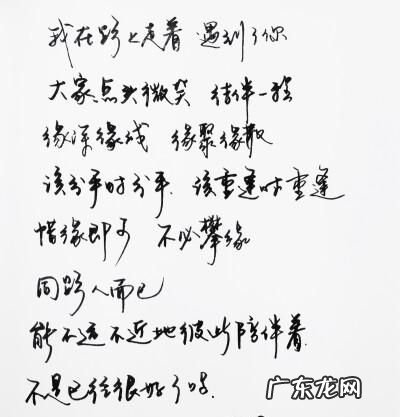 我在路上走着 遇到了你
大家点头微笑 结伴一程
缘深缘浅 缘聚缘散
该分手时分手 该重逢时重逢
惜缘即可 不必攀缘
同路人而已
能不远不近地彼此陪伴着
不是已经很好了吗
广东龙网